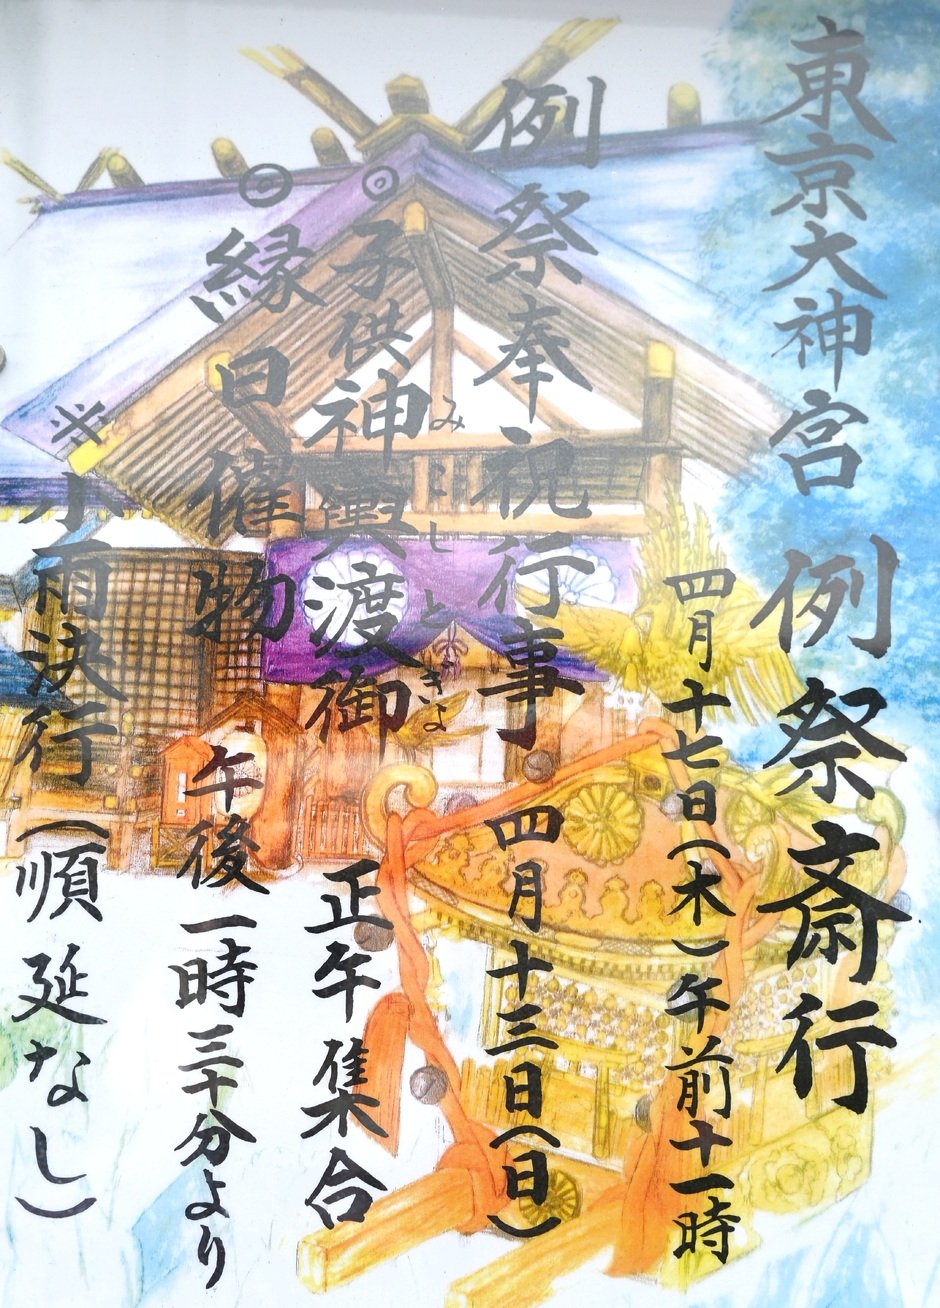 東京大神宮 例祭斎行
四月十七日(木)午前十一時
例祭奉祝行事 四月十三日(日)
◎子供神輿渡御 正午集合
みこしときょ
◎縁日催物 午後一時三十分より
※小雨決行(順延なし)